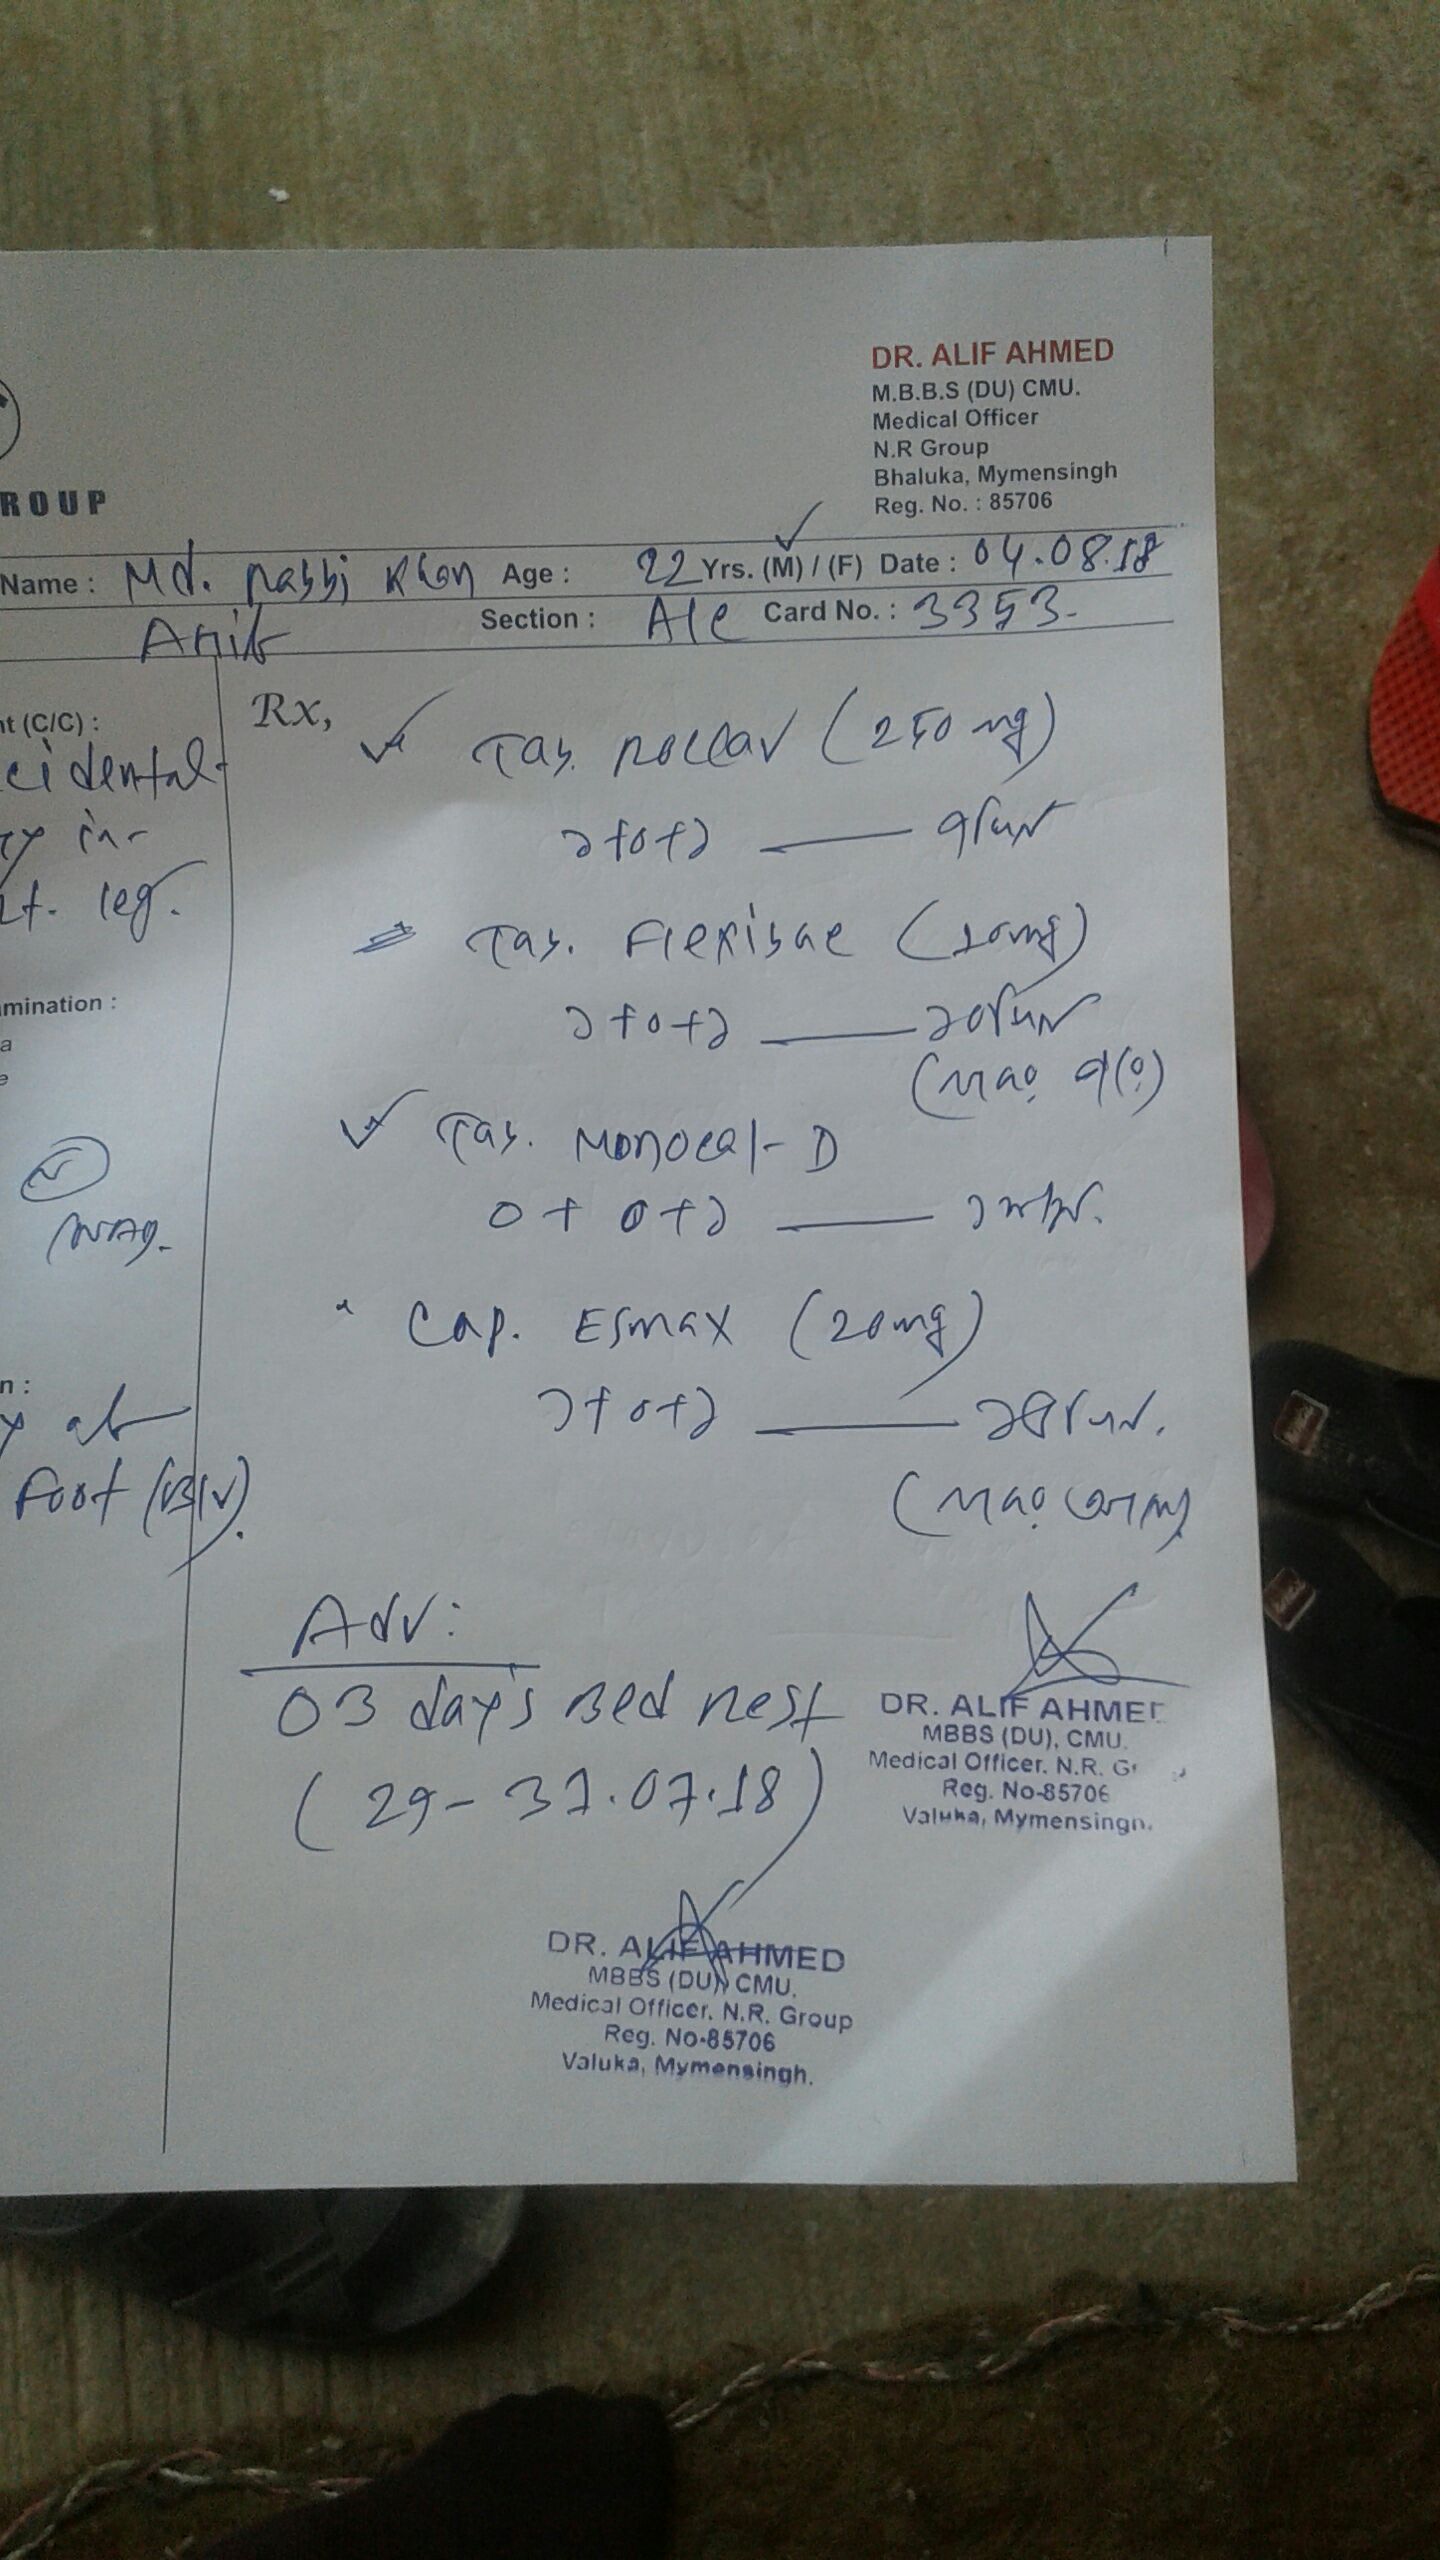 DR. ALIF AHMED
M.B.B.S (DU) CMU.
Medical Officer
N.R Group
Bhaluka, Mymensingh
Reg. No. : 85706
ROUP
Name : Md. Rabbi Khan Age : 22 Yrs. (M) / (F) Date : 04.08.18
Section : Card No. : 3353.
nt (C/C) :
cidental
ry in
Lt. leg.
mination :
a
e
n :
y at
foot (B/L).
Rx,
Tab. (250 mg)
১+০+১ — ৭দিন
Tab. Flexibac (10mg)
১+০+১ — ১০দিন
Tab. Monocal-D
০+০+১ — ১মাস.
Cap. Esmax (20mg)
১+০+১ — দিন.
Adv:
03 day's Bed Rest
(29-31.07.18)
DR. ALIF AHMED
MBBS (DU), CMU.
Medical Officer. N.R. Gr
Reg. No-85706
Valuka, Mymensingh.
DR. ALIF AHMED
MBBS (DU) CMU.
Medical Officer. N.R. Group
Reg. No-85706
Valuka, Mymensingh.